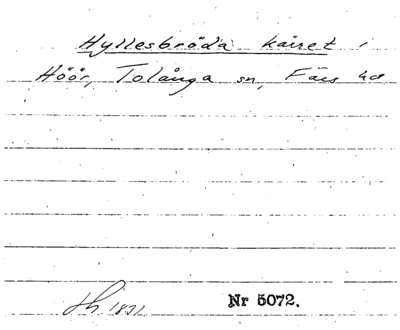 Hyllesbröda kärret i
Höör, Tolånga sn, Färs hd
1831
Nr 5072.